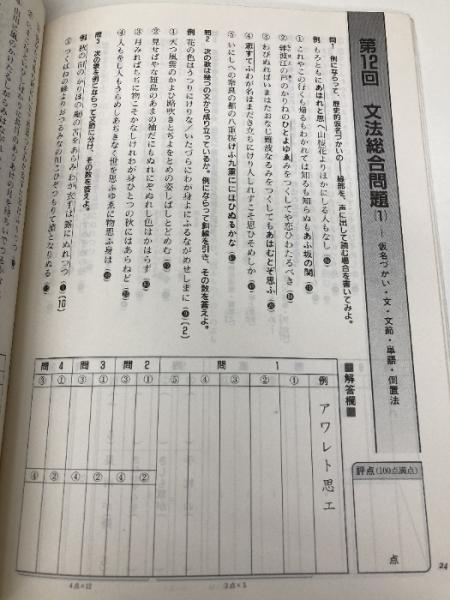 第12回 文法総合問題(1)―仮名づかい・文・文節・単語・倒置法
問1 例にならって、歴史的仮名づかいの――線部を、声に出して読む場合を書いてみよ。
例 もろともにあはれと思へ山桜花よりほかにしる人もなし
① これやこの行くも帰るもわかれては知るも知らぬもあふ坂の関
② 難波江の芦のかりねのひとよゆゑみをつくしてや恋ひわたるべき
③ わびぬればいまはたおなじ難波なるみをつくしてもあはむとぞ思ふ
④ 恋すてふわが名はまだき立ちにけり人しれずこそ思ひそめしか
⑤ いにしへの奈良の都の八重桜けふ九重ににほひぬるかな
問2 次の歌は幾つの文から成り立っているか。例にならって斜線を引き、その数を答えよ。
例 花の色はうつりにけりな／いたづらにわが身よにふるながめせしまに (2)
① 天つ風雲のかよひ路吹きとぢよをとめの姿しばしとどめむ
② 見せばやな雄島のあまの袖だにもぬれにぞぬれし色はかはらず
③ 月みればちぢに物こそかなしけれわが身ひとつの秋にはあらねど
④ 人もをし人もうらめしあぢきなく世を思ふゆゑに物思ふ身は
問3 次の歌を例にならって文節に分け、その数を答えよ。
例 秋の田のかりほの庵の苫をあらみわが衣手は露にぬれつつ (10)
① つくばねの峰よりおつるみなの川こひぞつもりて淵となりぬる
■解答欄■
例 アワレト思エ
問1 ① ② ③ ④ ⑤
問2 ① ② ③ ④
問3 ① ② ③ ④
問4 ① ② ③ ④
3点×5
4点×12
評点(100点満点)
点
24